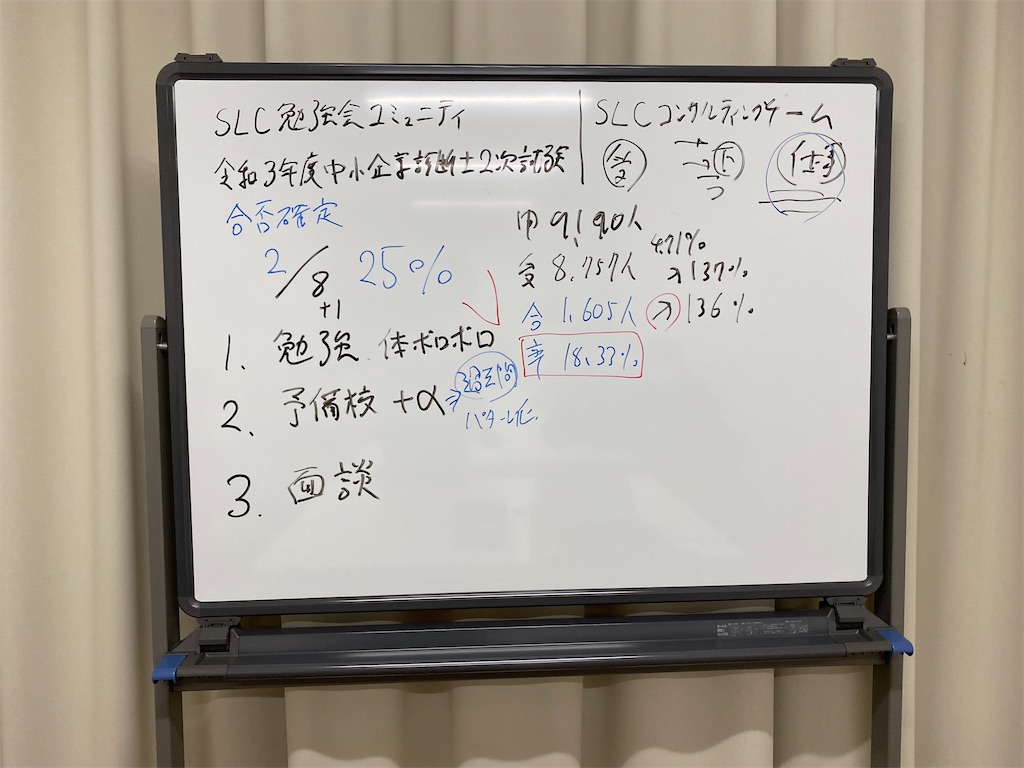 SLC勉強会コミュニティ
令和3年度中小企業診断士2次試験
合否確定
2/8 25%
+1
1. 勉強 体ボロボロ
2. 予備校 +α ⇒
パターン化
3. 面談
SLCコンサルティングゲーム
仕事
申 9,190人
4.71%
受 8,757人 ↗137%
合 1,605人 ↗136%
率 18.33%